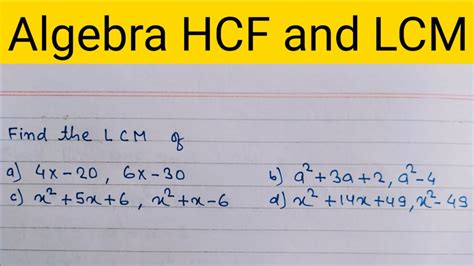 Algebra HCF and LCM
Find the LCM of
a) 4x-20, 6x-30 b) a²+3a+2, a²-4
c) x²+5x+6, x²+x-6 d) x²+14x+49, x²-49